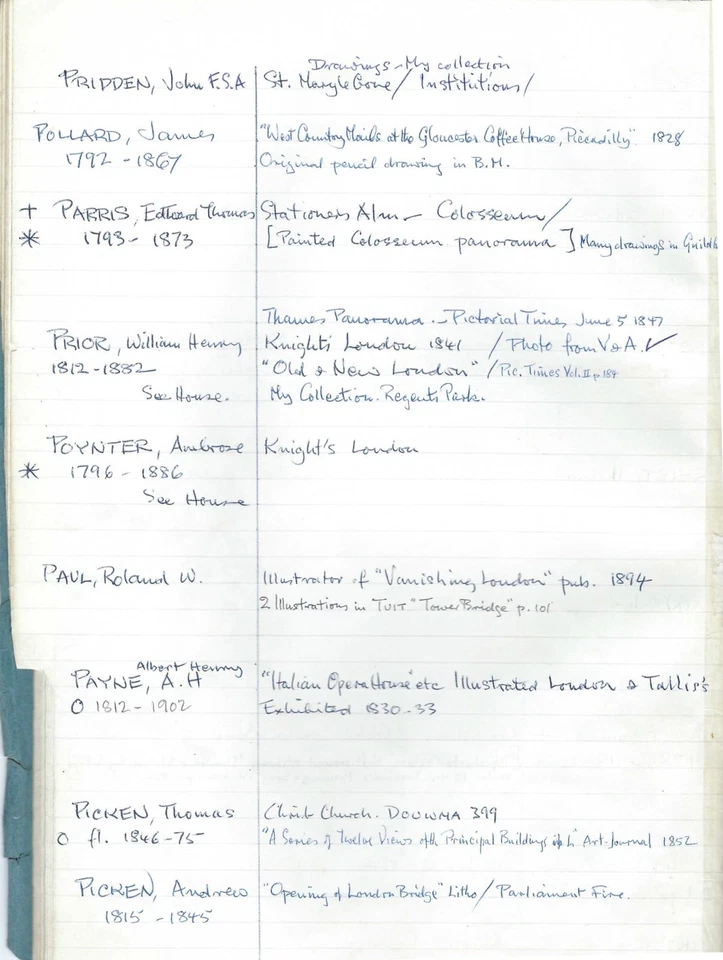 Drawings - My collection
PRIDDEN, John F.S.A St. Marylebone / Institutions /
POLLARD, James "West Country Mails at the Gloucester Coffee House, Piccadilly". 1828
1792 - 1867 Original pencil drawing in B.M.
+ PARRIS, Edward Thomas Stationers Alm - Colosseum /
* 1793 - 1873 [Painted Colosseum panorama] Many drawings in Guildh
Thames Panorama - Pictorial Times June 5 1847
PRIOR, William Henry Knight's London 1841 / Photo from V & A. ✓
1812 - 1882 "Old & New London" / Pic. Times Vol. II p 184
See House. My Collection. Regents Park.
POYNTER, Ambrose Knight's London
* 1796 - 1886
See House
PAUL, Roland W. Illustrator of "Vanishing London" pub. 1894
2 Illustrations in TUIT "Tower Bridge" p. 101
Albert Henry
PAYNE, A.H "Italian Opera House" etc Illustrated London & Tallis's
O 1812 - 1902 Exhibited 1830 - 33
PICKEN, Thomas Christ Church. DOUWMA 399
O fl. 1846 - 75 "A Series of Twelve Views of the Principal Buildings in L" Art-Journal 1852
PICKEN, Andrew "Opening of London Bridge" Litho / Parliament Fire.
1815 - 1845